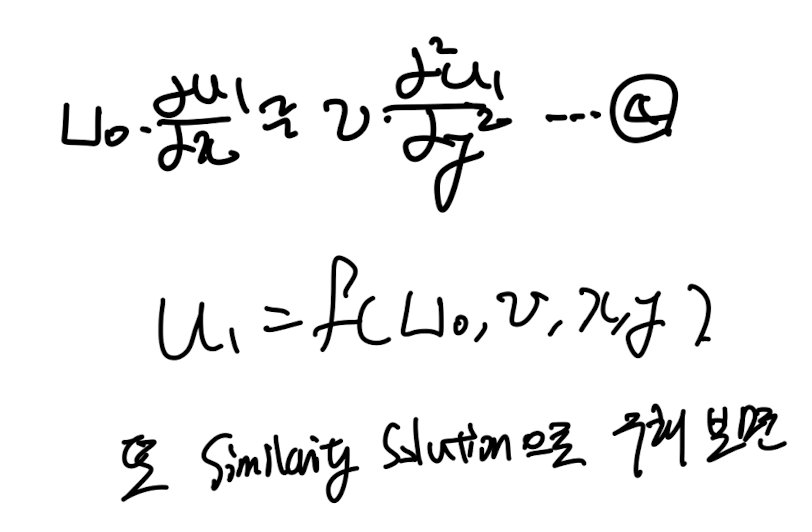 U₀·∂u₁/∂x ≈ ν·∂²u₁/∂y² ··· ⓐ
u₁ = f(U₀, ν, x, y)
또 Similarity Solution으로 구해 보면